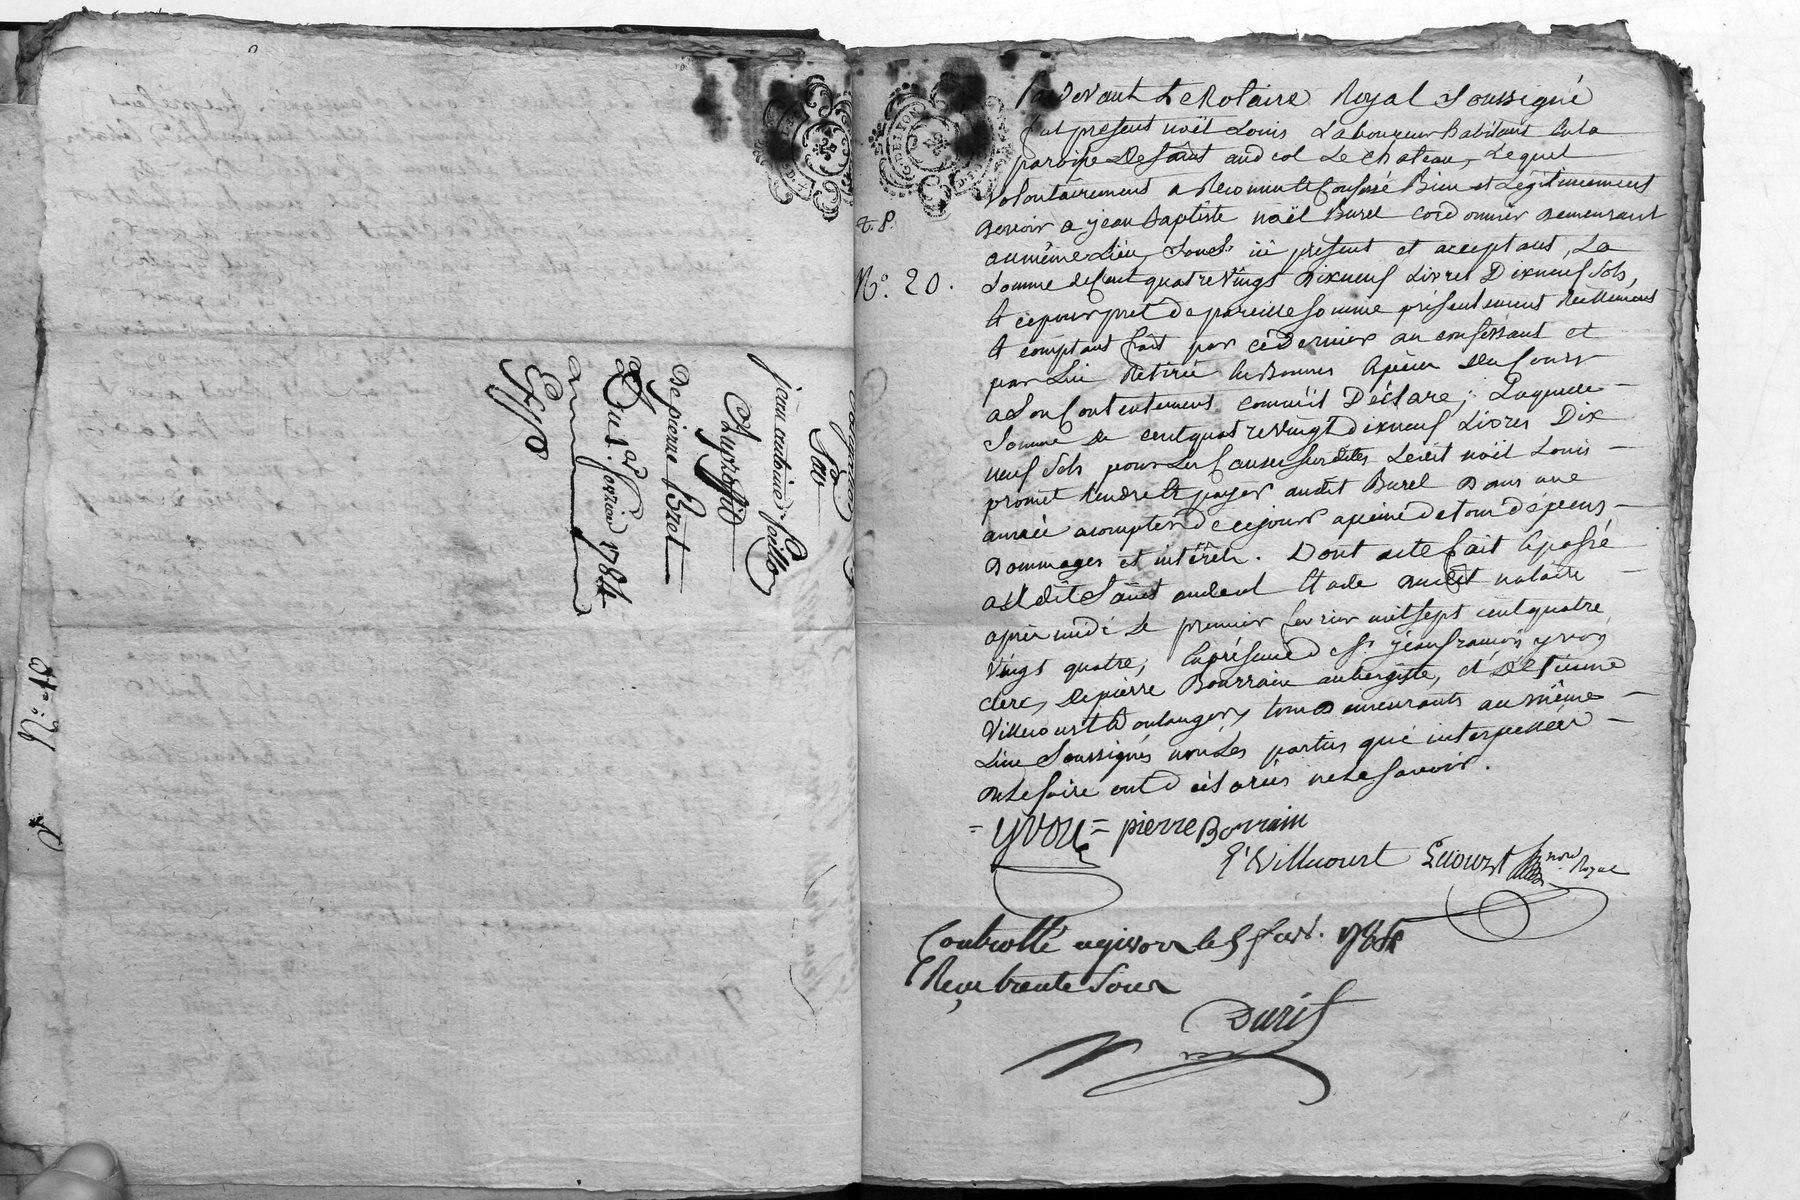 Obligation
Par
jean antoine feillo
Au profit
De pierre Bret
Du 1.er fevrier 1784
Exp.é
N.o 19
G. DE LYON
t. p.
N.o 20.
Pardevant Le Notaire Royal Soussigné
fut présent noël Louis Laboureur habitant en la
paroisse De saint andeol Le chateau, Lequel
volontairement a Reconnu et Confessé Bien et Légitimement
Devoir a jean Baptiste noël Burel cordonnier Demeurant
au même Lieu, ici présent et acceptant, La
somme de Cent quatre vingts Dixneuf Livres Dixneuf sols,
Et ce pour pret de pareille somme présentement Réellement
Et comptant fait par ce Dernier au confessant et
par Lui Retirée en Bonnes Espèces Du Cours
a Son Contentement comm'il Déclare; Laquelle
Somme de cent quatre vingt dixneuf Livres Dix
neuf Sols pour Les Causes susdites Ledit noël Louis
promet Rendre et payer audit Burel Dans une
année a compter De ce jour a peine de tous dépens
Dommages et intérêts. Dont acte fait et passé
audit Saint andeol Etude dudit notaire
après midi Le premier fevrier mil sept cent quatre
vingt quatre, En présence de Sr. jean françois yvon
clerc, De pierre Bourrain aubergiste, et D'Etienne
Villecourt Boulanger, tous Demeurants au même
Lieu Soussignés non Les parties qui interpellées
De Le faire ont Déclarées ne Le Savoir.
= yvon = pierre Borrain
E' Villecourt Lecourt nore Royal
Controllé a givors le 5 fevr. 1784
Reçu trente Sous
Durif